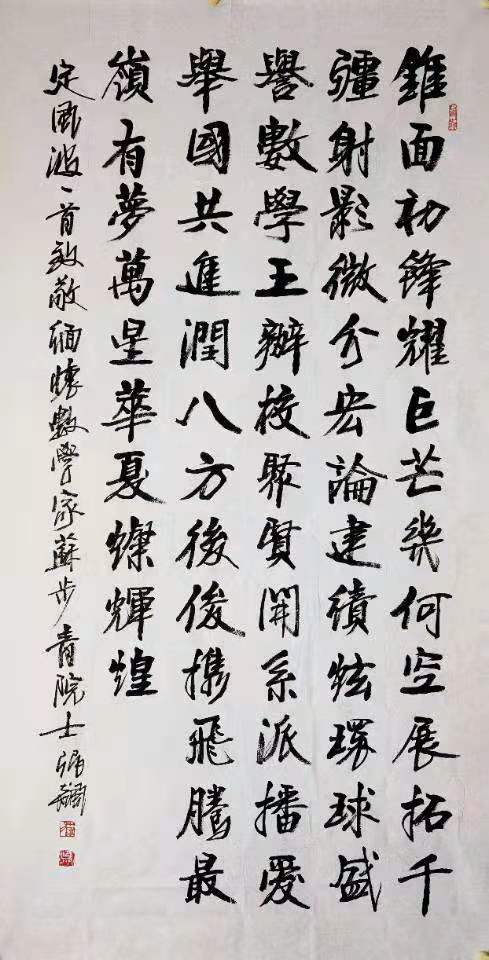 錐面初鋒耀巨芒幾何空展拓千
疆射影微分宏論建績炫環球盛
譽數學王辦校聚賢開系派播愛
舉國共進潤八方後俊携飛騰最
嶺有夢萬星華夏燦輝煌
定風波一首致敬缅懷數學家蘇步青院士